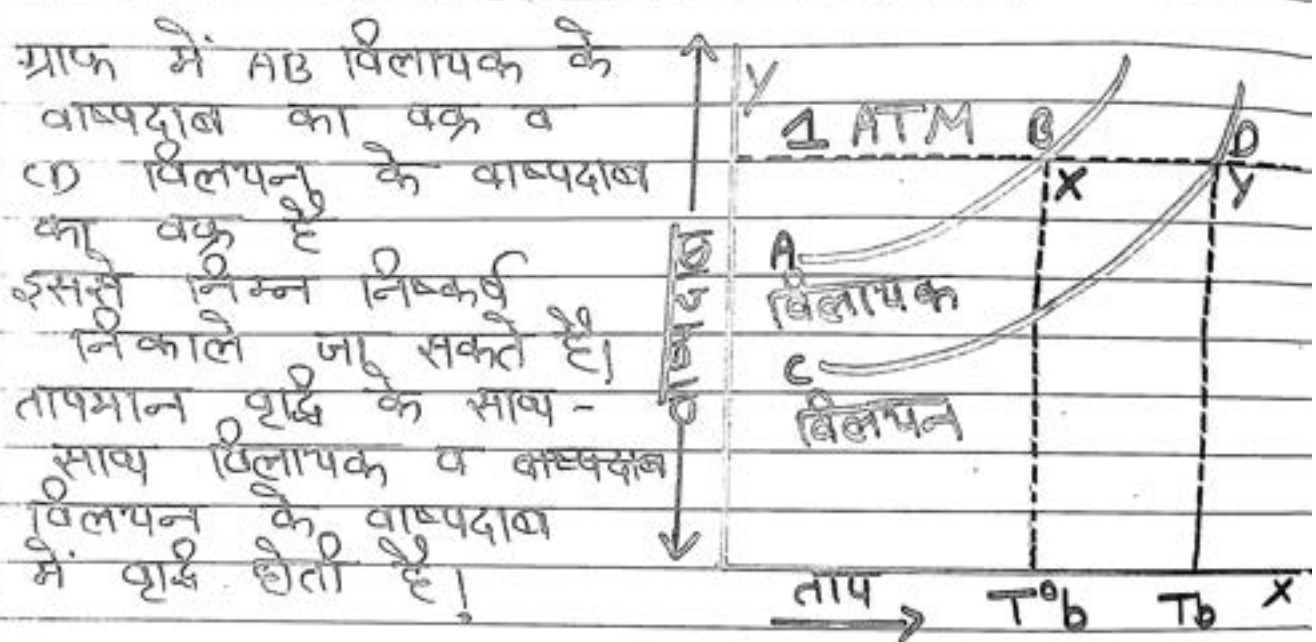 ग्राफ में AB विलायक के
वाष्पदाब का वक्र व
CD विलयन के वाष्पदाब
का वक्र है
इससे निम्न निष्कर्ष
निकाले जा सकते है।
तापमान वृद्धि के साथ -
साथ विलायक व वाष्पदाब
विलयन के वाष्पदाब
में वृद्धि होती है।
Y
1 ATM B D
X Y
A
विलायक
C
विलयन
वाष्पदाब
ताप T°b Tb X